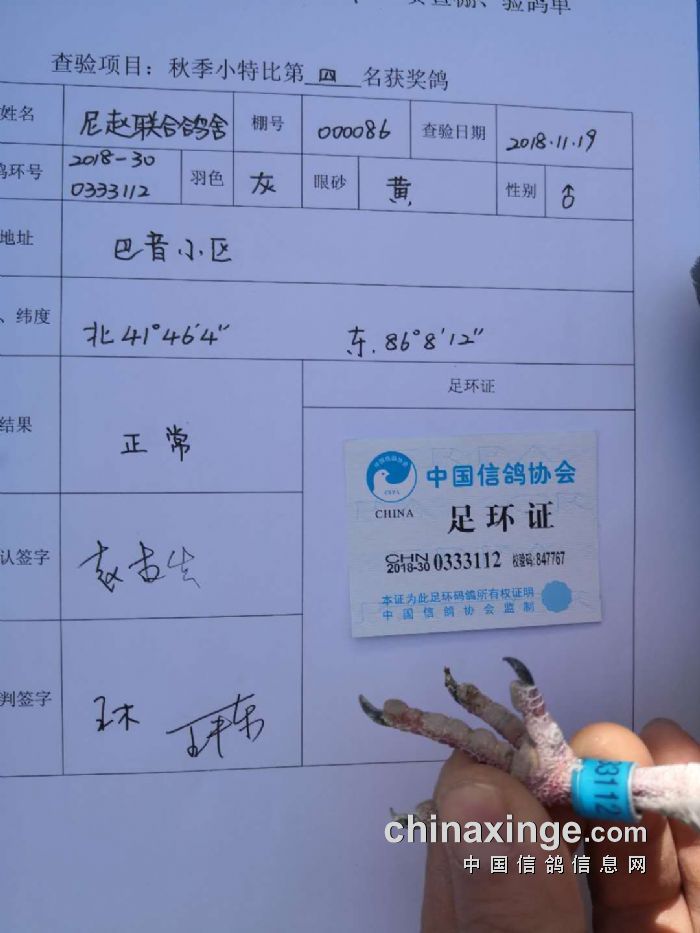 查棚、验鸽单
查验项目：秋季小特比第四名获奖鸽
姓名 尼赵联合鸽舍 棚号 000086 查验日期 2018.11.19
鸽环号 2018-30 0333112 羽色 灰 眼砂 黄 性别 ♂
地址 巴音小区
、纬度 北41°46′4″ 东.86°8′12″
结果 正常 足环证
中国信鸽协会
CHINA
足环证
CHN
2018-30 0333112 校验码:847767
本证为此足环码鸽所有权证明
中国信鸽协会监制
认签字
判签字 王木
33112
chinaxinge.com
中国信鸽信息网